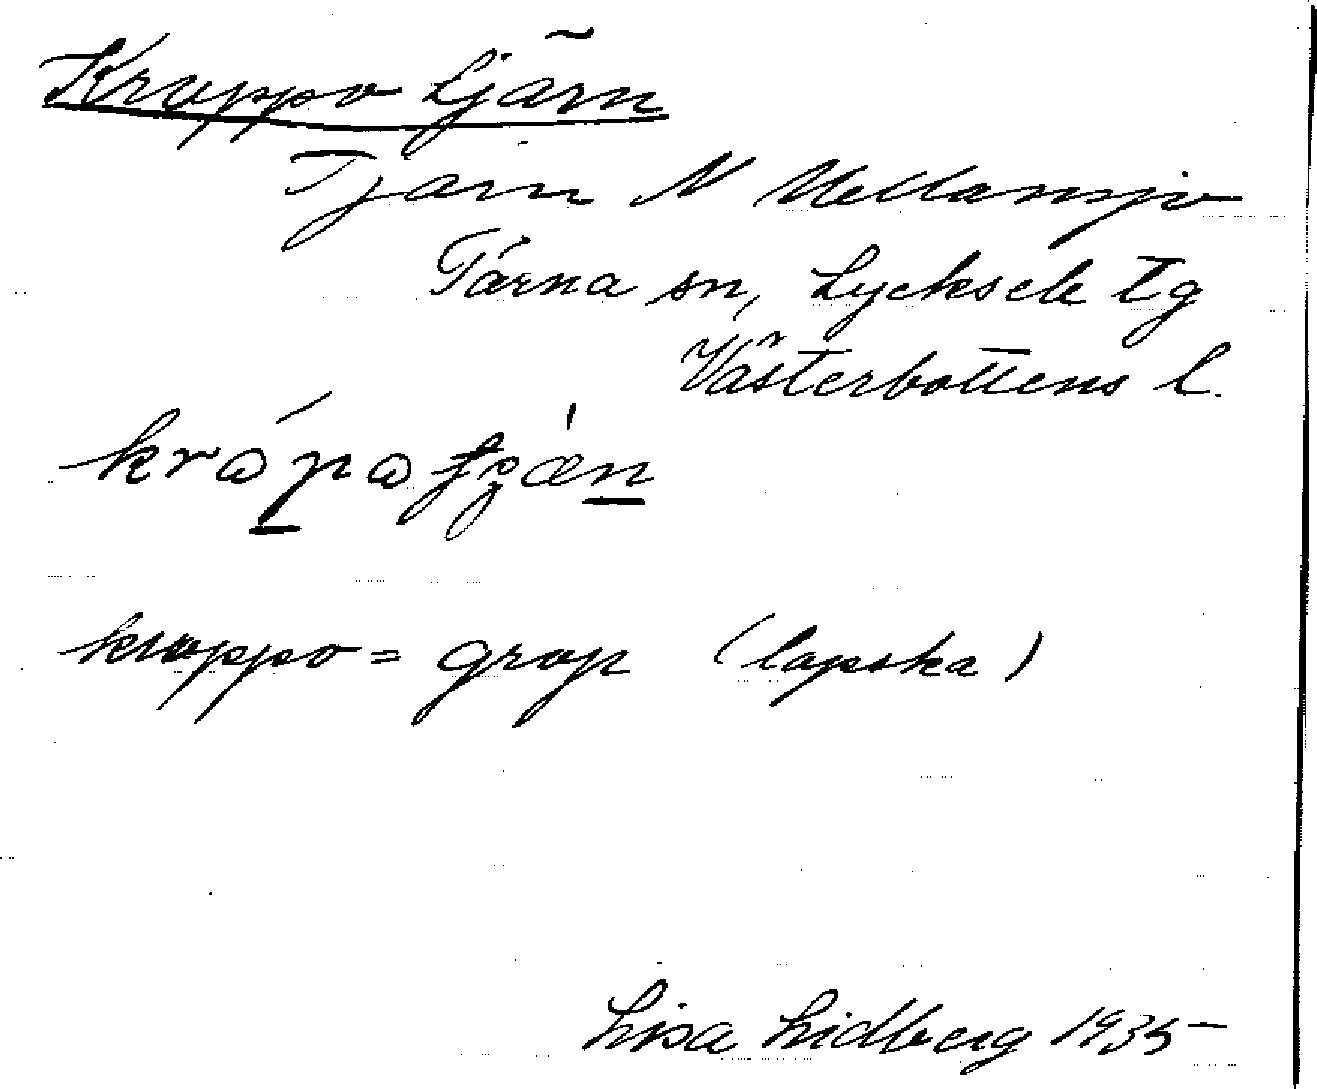 Kroppo tjärn
Tjärn N Mellansjö
Tärna sn, Lycksele tg
Västerbottens l.
kroppo = grop (lapska)
Lisa Lidberg 1935